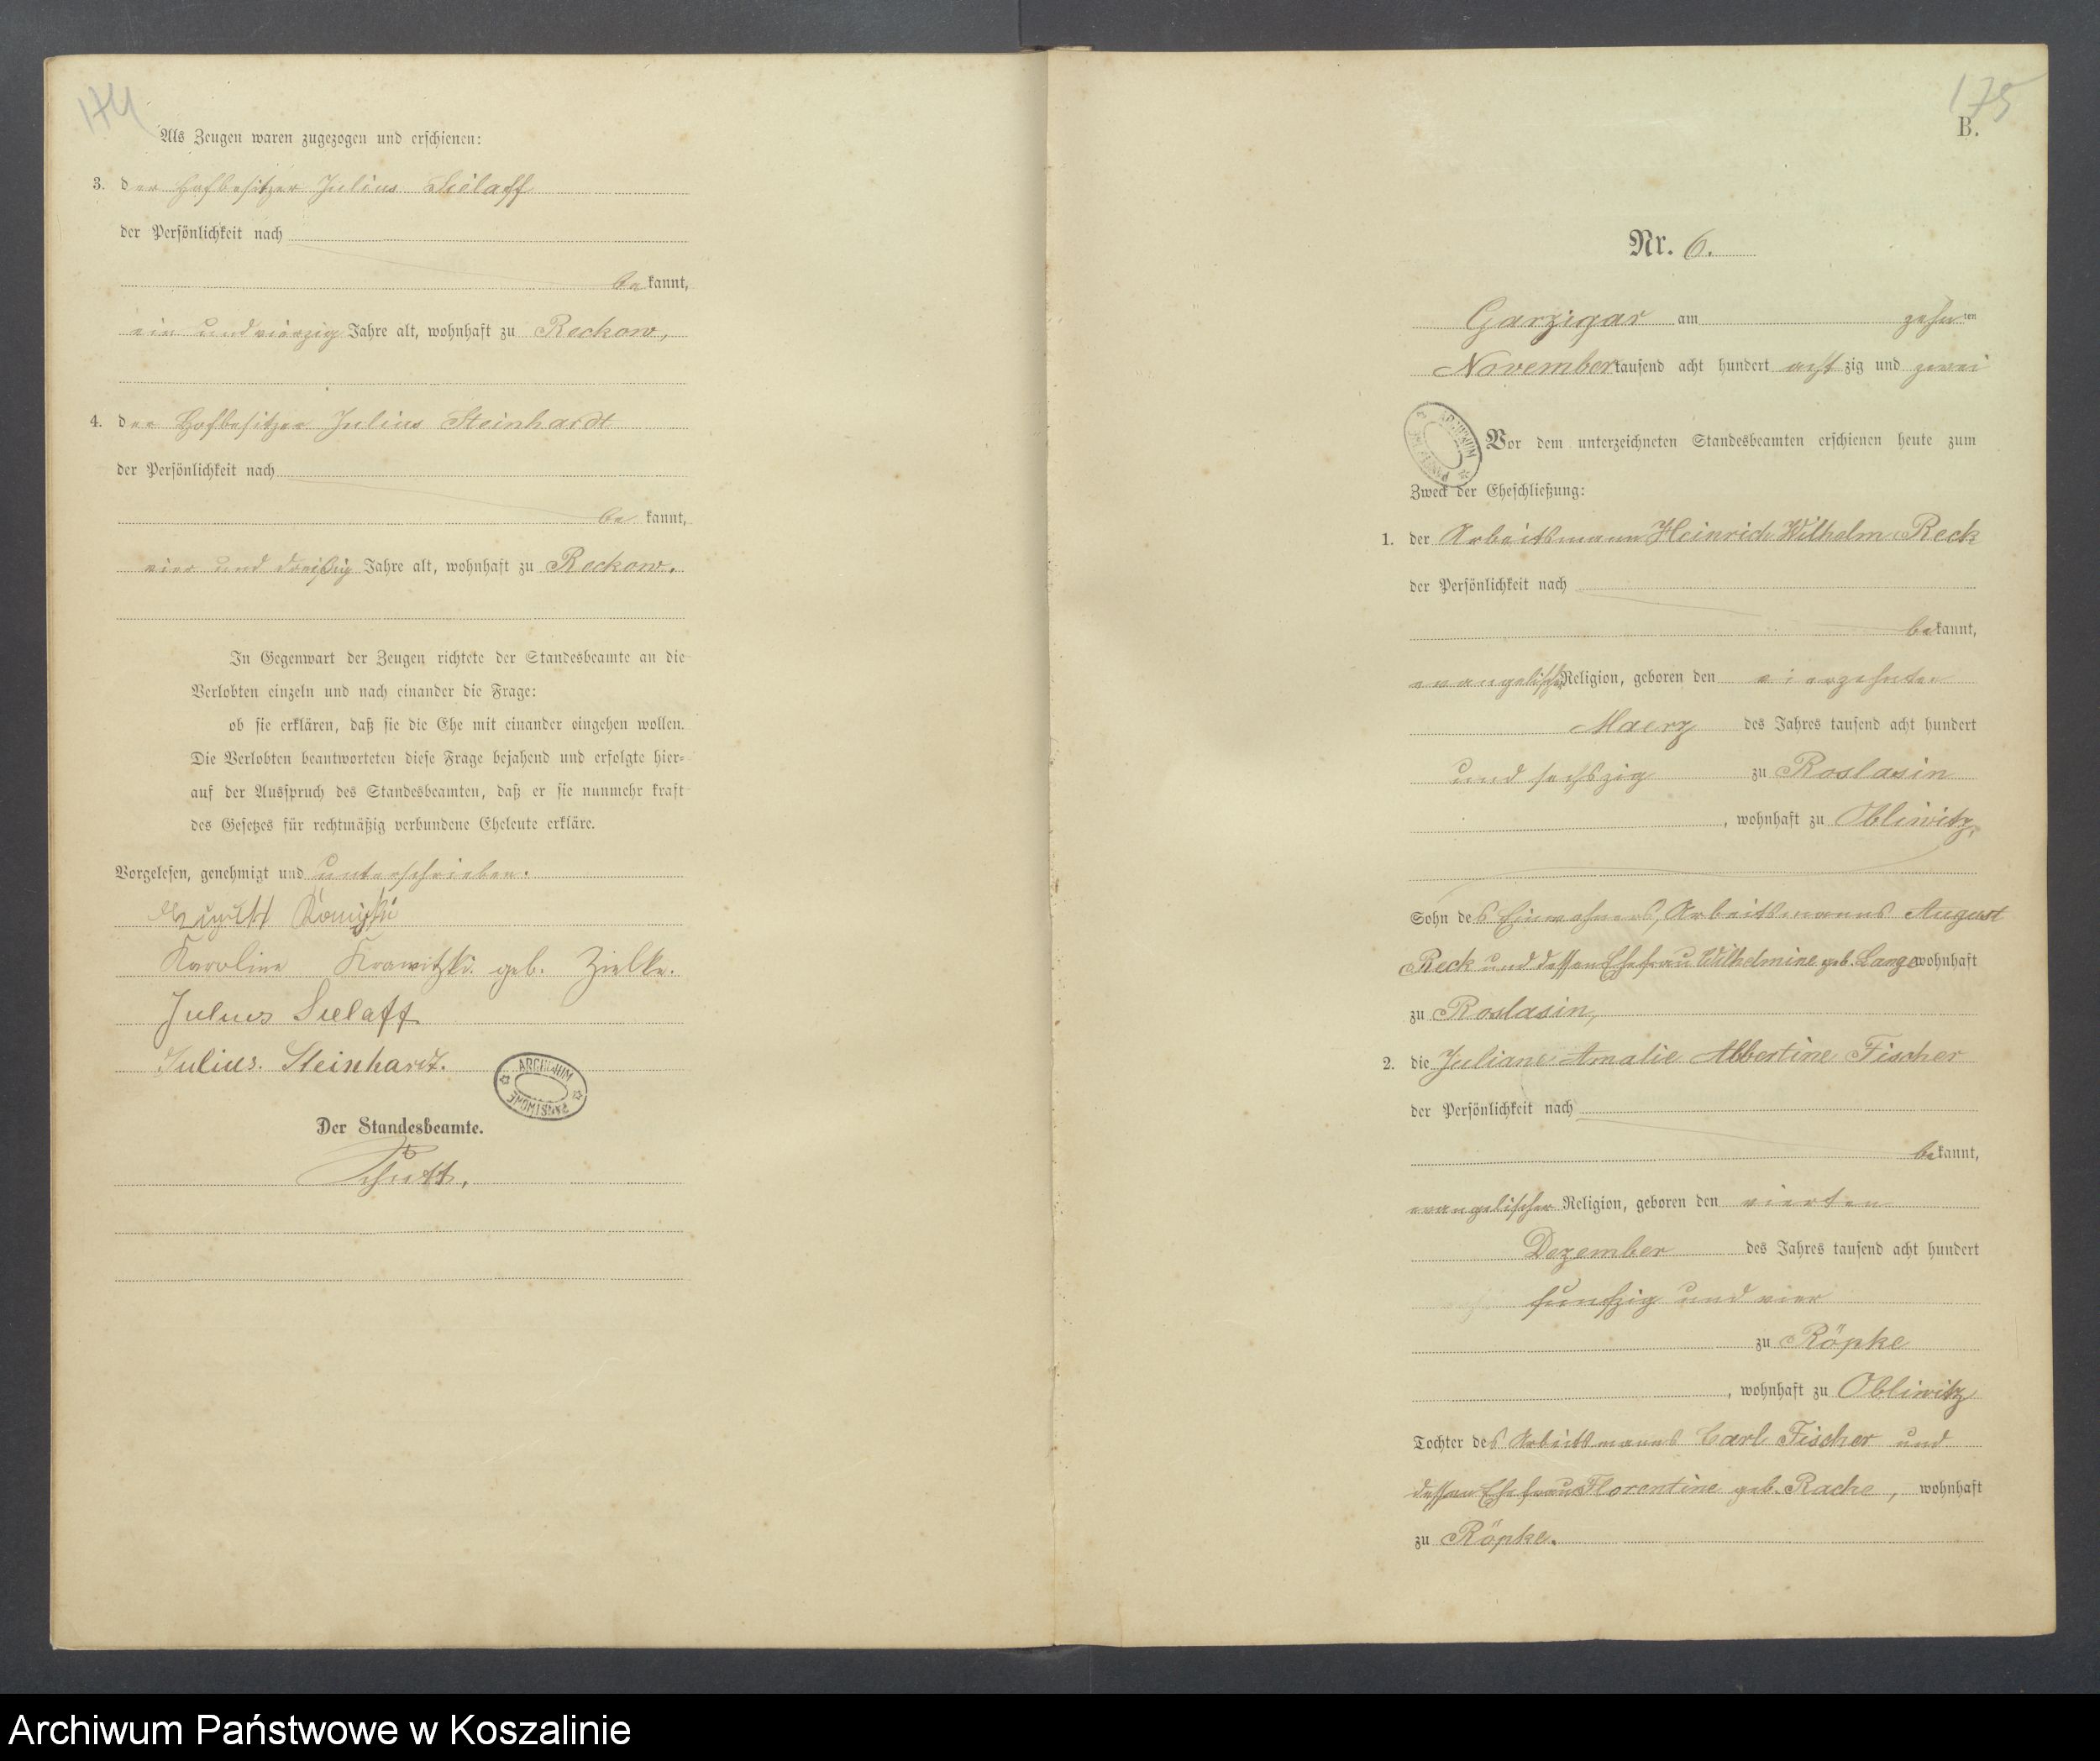 174
Als Zeugen waren zugezogen und erschienen:
3. der Hofbesitzer Julius Sielaff
der Persönlichkeit nach
be kannt,
ein und vierzig Jahre alt, wohnhaft zu Reckow,
4. der Hofbesitzer Julius Steinhardt
der Persönlichkeit nach
be kannt,
vier und dreißig Jahre alt, wohnhaft zu Reckow.
In Gegenwart der Zeugen richtete der Standesbeamte an die
Verlobten einzeln und nach einander die Frage:
ob sie erklären, daß sie die Ehe mit einander eingehen wollen.
Die Verlobten beantworteten diese Frage bejahend und erfolgte hier-
auf der Ausspruch des Standesbeamten, daß er sie nunmehr kraft
des Gesetzes für rechtmäßig verbundene Eheleute erkläre.
Vorgelesen, genehmigt und unterschrieben.
August
Karoline Krawitzki geb. Zielke.
Julius Sielaff
Julius. Steinhardt.
ARCHIWUM
Der Standesbeamte.
175
B.
Nr. 6.
Garzigar am zehn ten
November tausend acht hundert acht zig und zwei
ARCHIWUM
Vor dem unterzeichneten Standesbeamten erschienen heute zum
Zweck der Eheschließung:
1. der Arbeitsmann Heinrich Wilhelm Reck
der Persönlichkeit nach
be kannt,
evangelischer Religion, geboren den vierzehnten
Maerz des Jahres tausend acht hundert
und sechszig zu Roslasin
, wohnhaft zu Obliwitz,
Sohn des Einwohners, Arbeitsmanns August
Reck und dessen Ehefrau Wilhelmine geb. Lange wohnhaft
zu Roslasin,
2. die Juliane Amalie Albertine Fischer
der Persönlichkeit nach
be kannt,
evangelischer Religion, geboren den vierten
Dezember des Jahres tausend acht hundert
funfzig und vier
zu Röpke
, wohnhaft zu Obliwitz
Tochter des Arbeitsmanns Carl Fischer und
dessen Ehefrau Florentine geb. Rache, wohnhaft
zu Röpke.
Archiwum Państwowe w Koszalinie